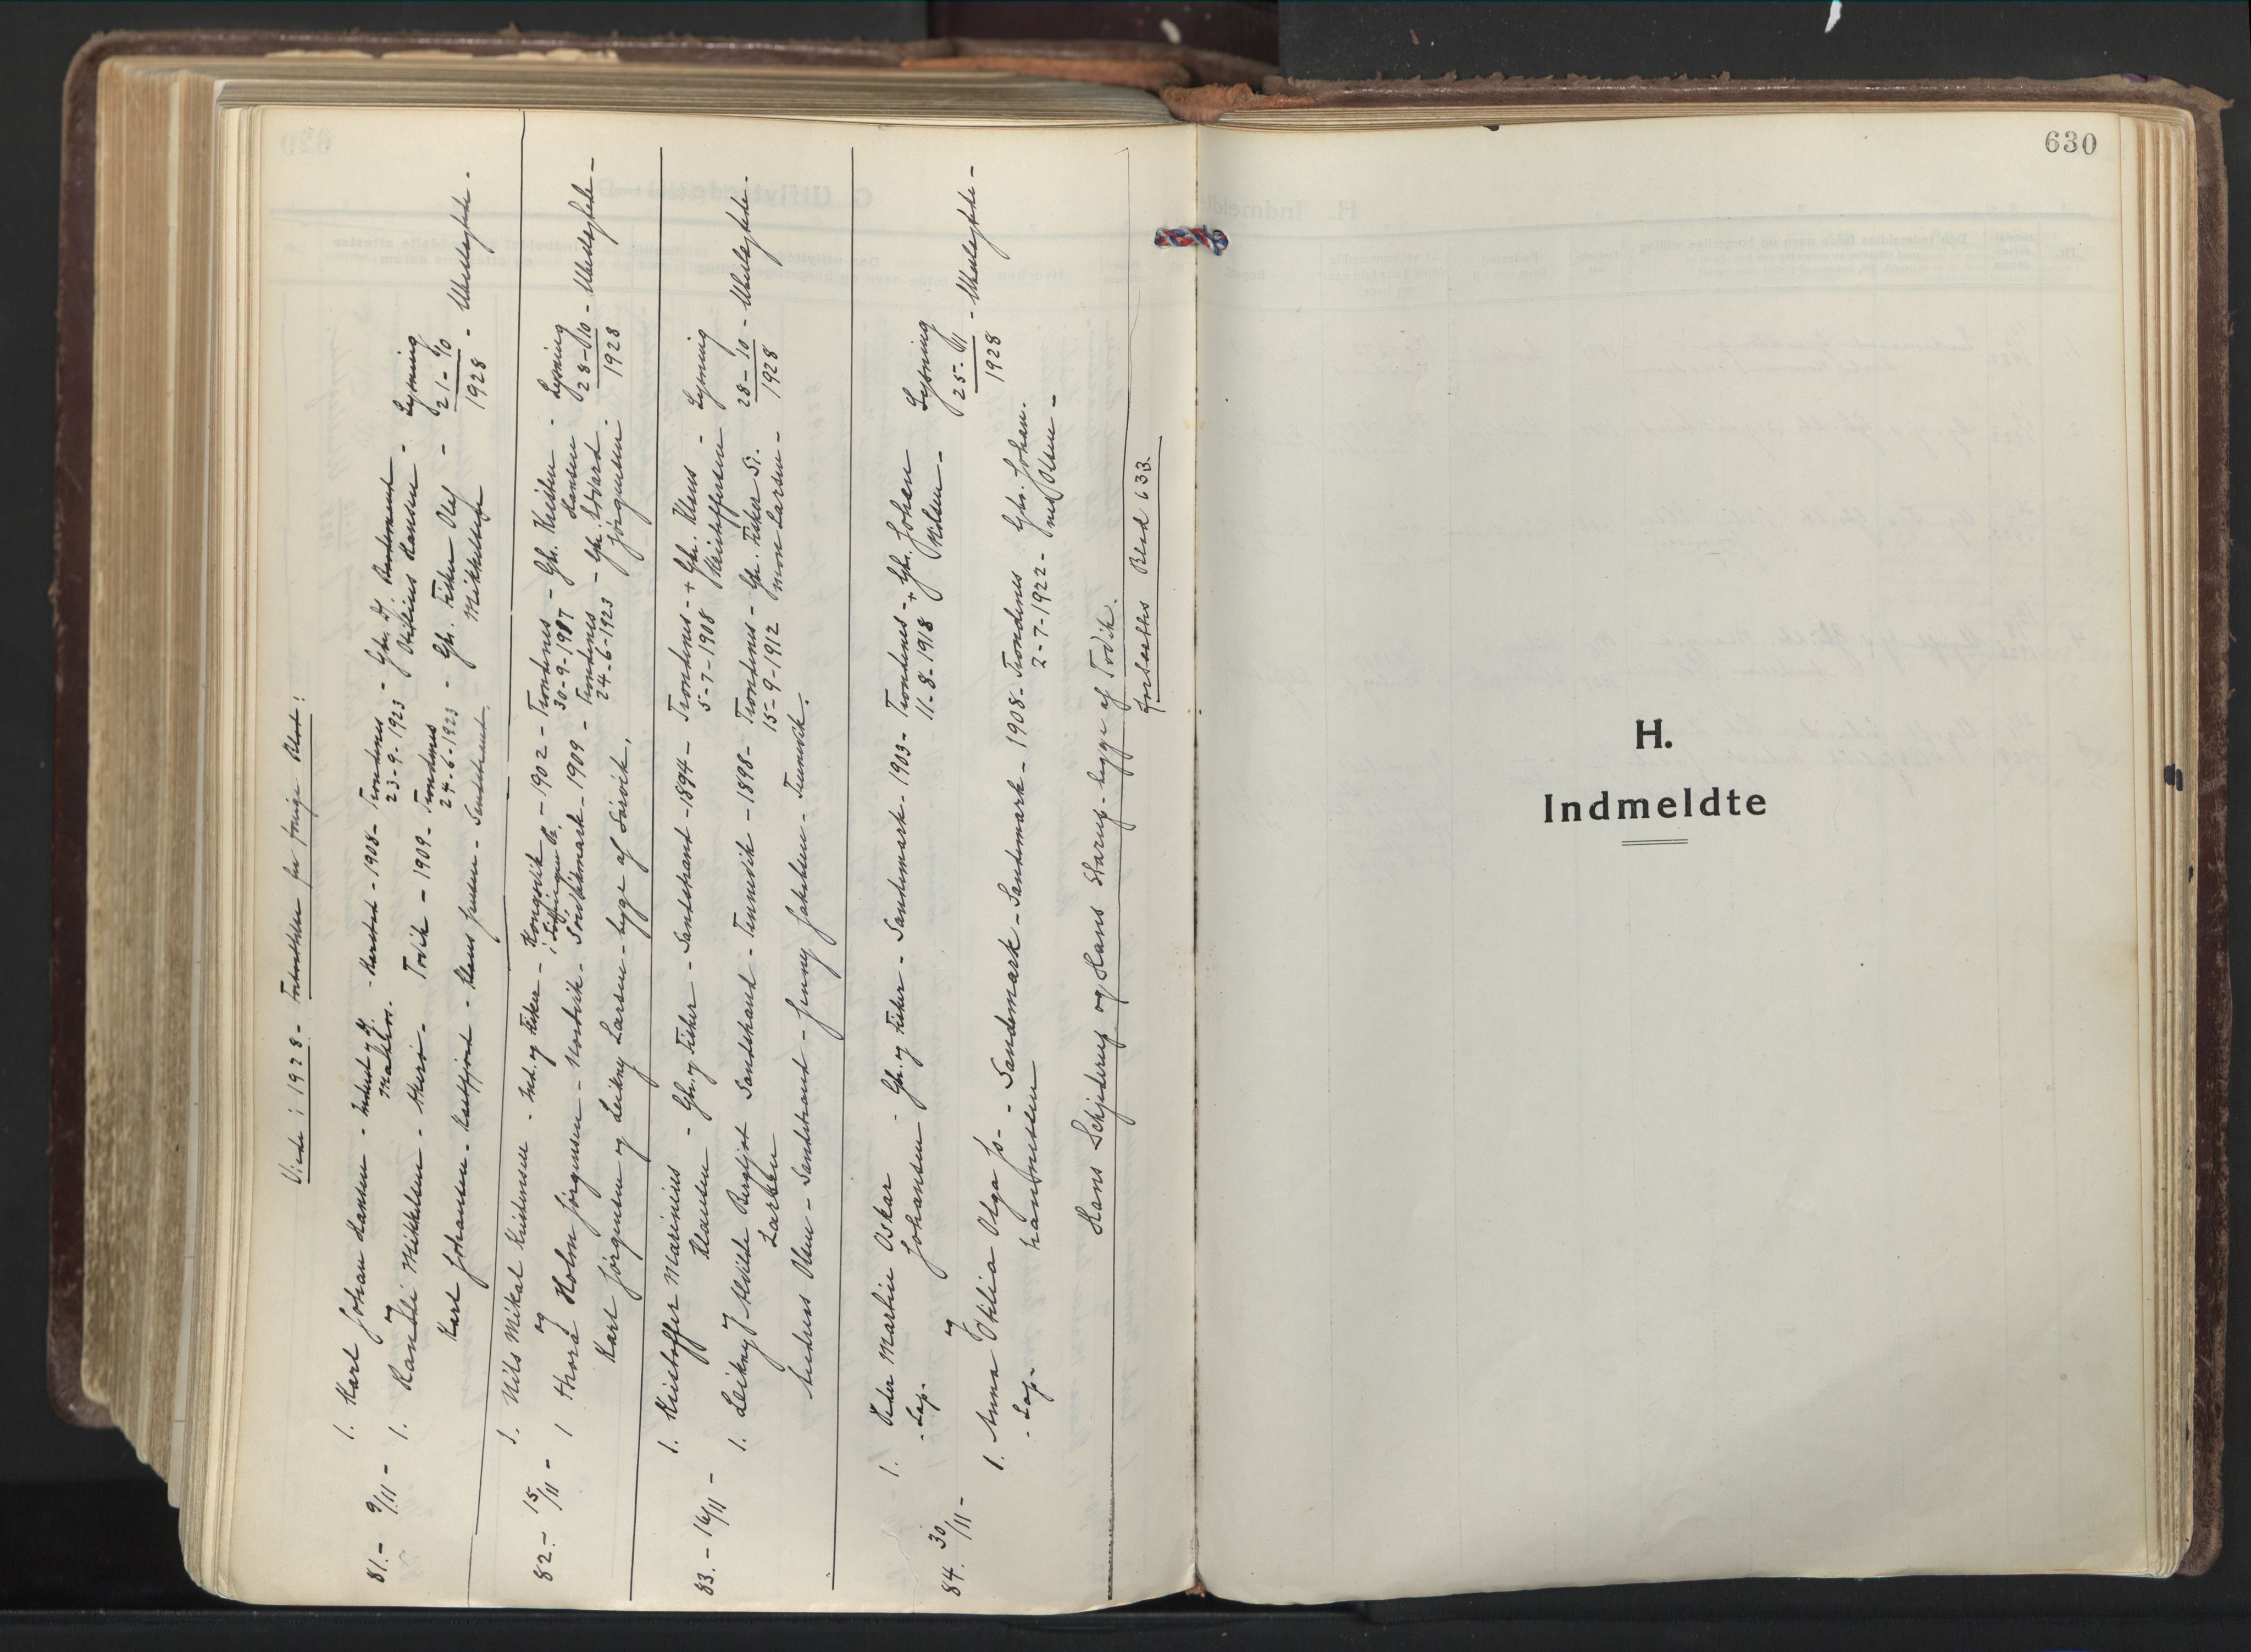 Viede i 1928. Fortsættelse fra forrige Blad:
81.- 9/11 - 1. Karl Johan Hansen - Indust og Maskin. - Harstad - 1908 - Trondenes 23-9-1923 - Gbr. Otilius Hansen - Lysning 21-10 1928 - Ubeslegtede -
og
1. Randli Mikkelsen - Tovik - 1909 - Trondenes 24-6-1923 - Gbr. Fisker Olaf Mikkelsen
Karl Johansen - Kastfjord - Klaus Jensen - Sandstrand.
82.- 15/11 - 1. Nils Mikal Kristensen - Ind. og Fisker - Kongsvik i Tjeldsundet - 1902 - Trondenes 30-9-1917 - Gbr. Kristen Hansen - Lysning 28-10 1928 - Ubeslegtede -
og
1 Thora Holm Jørgensen - Nordvik - Sørvikmark - 1909 - Trondenes 24-6-1923 - Gbr. Edvard Jørgensen -
Karl Jørgensen og Leikny Larsen - bygge af Sørvik.
83.- 16/11 - 1. Kristoffer Marinius Klausen - Gbr. og Fisker - Sandstrand - 1894 - Trondenes 5-7-1908 - + Gbr. Klaus Kristoffersen - Lysning 28-10 1928 - Ubeslegtede -
og
1. Leikny Alvilde Bergljot Larsen Sandstrand - Tennevik - 1898 - Trondenes 15-9-1912 - Gbr. Fisker Simon Larsen -
Andreas Olsen - Sandstrand - Jenny Jakobsen - Tennevik.
84. 30/11 - 1. Peder Martin Oskar Johansen - Gbr. og Fisker - Sandemark - 1903 - Trondenes 11-8-1918 - + Gbr. Johan Nilsen - Lysning 25-11 1928 - Ubeslegtede -
- Lap.
og
1. Anna Otilia Olga Johannessen - Sandemark - Sandemark - 1908 - Trondenes 2-7-1922 - Gbr. Johannes Olsen -
- Lap.
Hans Schjelderup og Hans Starup - bygge af Tovik.
Fortsættes Blad 633.
630
H.
Indmeldte